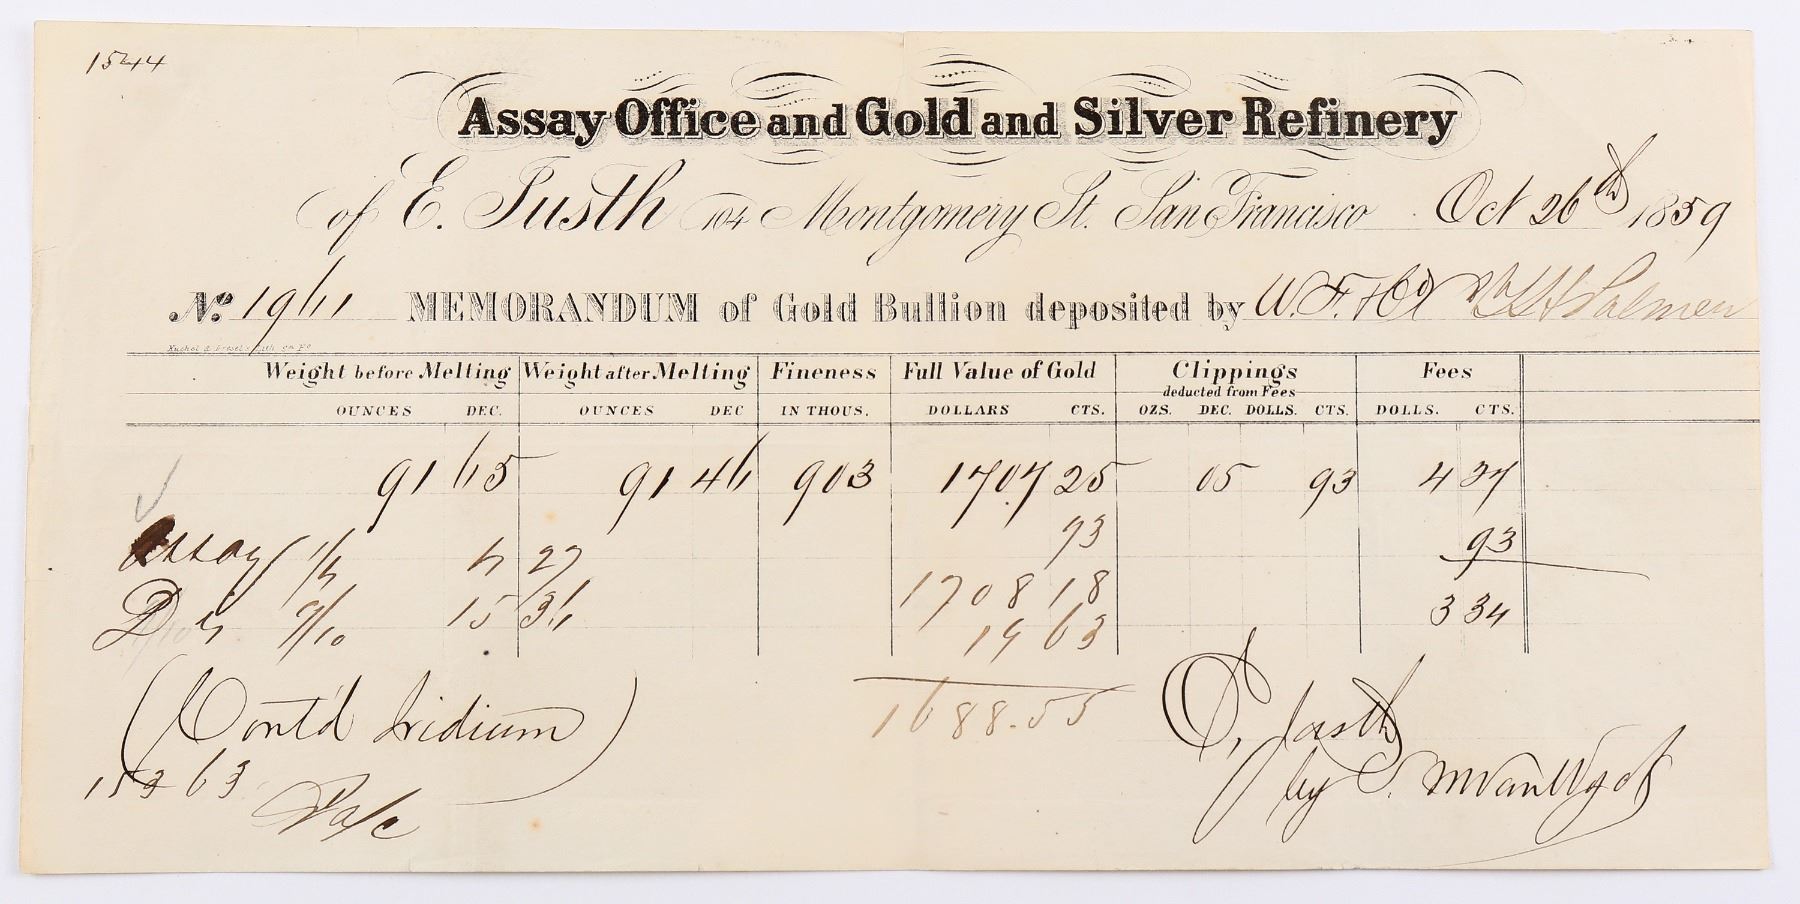 1544
Assay Office and Gold and Silver Refinery
of E. Justh 104 Montgomery St. San Francisco Oct 26th 1859
No. 1961 MEMORANDUM of Gold Bullion deposited by W. F. & Co
Weight before Melting Weight after Melting Fineness Full Value of Gold Clippings Fees
deducted from Fees
OUNCES DEC. OUNCES DEC IN THOUS. DOLLARS CTS. OZS. DEC. DOLLS. CTS. DOLLS. CTS.
91 65 91 46 903 1707 25 05 93 4 27
93 93
Assay 27
1708 18 3 34
15 36
19 63
(Cont'd Iridium)
1688.55
E. Justh
by